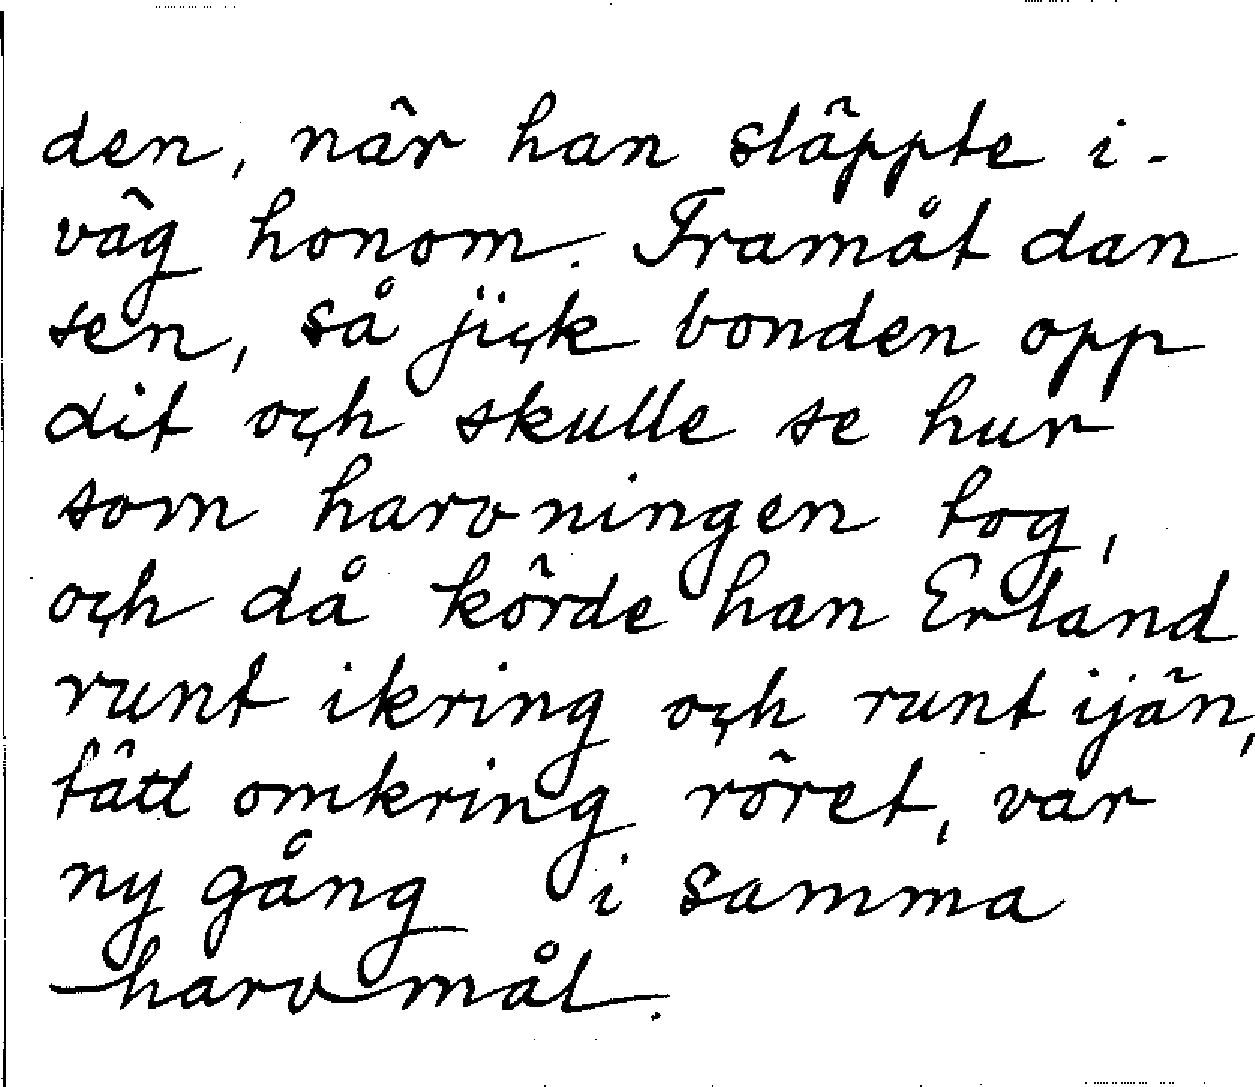 den, när han släppte i-
väg honom. Framåt dan
sen, så jick bonden opp
dit och skulle se hur
som harvningen tog,
och då körde han Erland
runt ikring och runt ijän,
tätt omkring röret, var
ny gång i samma
harvmål.